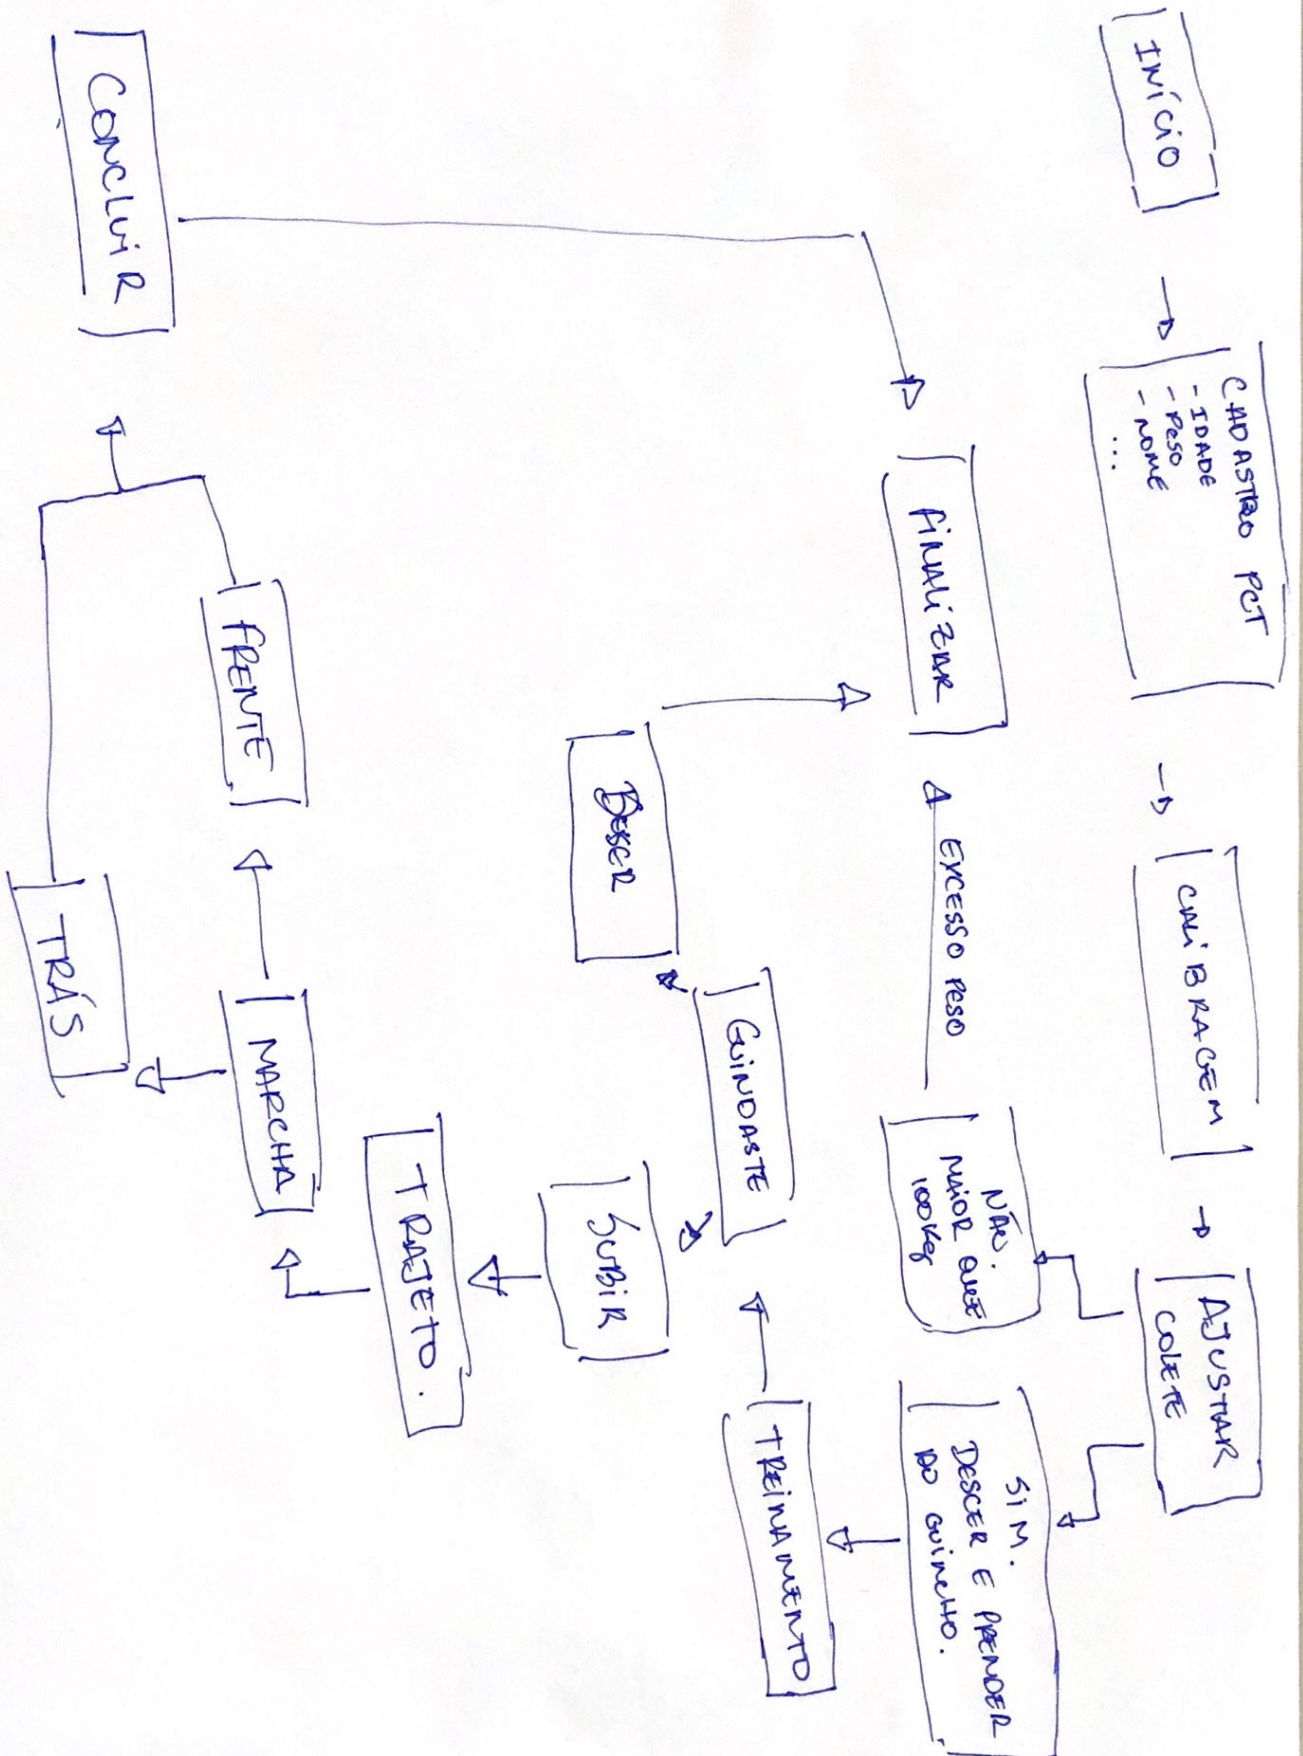 INÍCIO
CADASTRO PCT
- IDADE
- PESO
- NOME
...
CALIBRAGEM
AJUSTAR
COLETE
NÃO.
MAIOR QUE
100Kg
SIM.
DESCER E PRENDER
AO GUINCHO.
EXCESSO PESO
FINALIZAR
TREINAMENTO
GUINDASTE
SUBIR
TRAJETO.
MARCHA
FRENTE
TRÁS
CONCLUIR